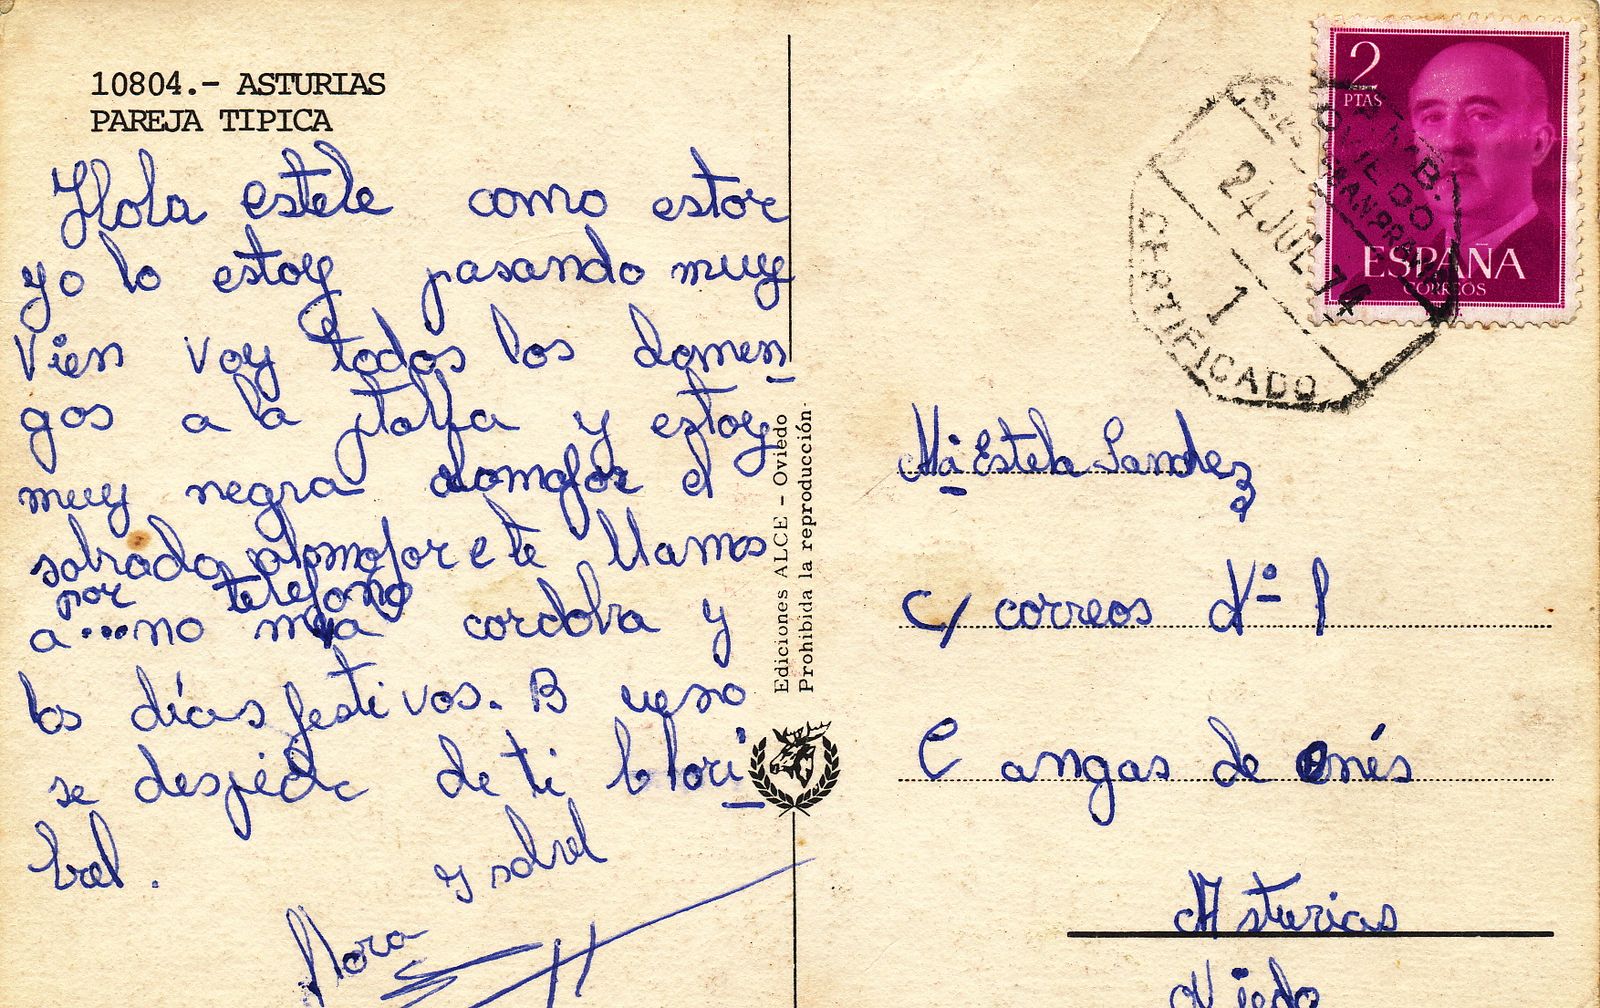 10804.- ASTURIAS
PAREJA TIPICA
Hola estele como estor
yo lo estoy pasando muy
Vien voy todos los domen
gos a la y estoy
muy negra alomofor el
sobrado alomofor e te llamo
por telefono
a...no cordobra y
los días festivos. B ueno
se despide de ti
brel.
Ysabrel
Flora
Ediciones ALCE - Oviedo
Prohibida la reproducción.
2
PTAS
ESPAÑA
CORREOS
24 JUL 74
1
CERTIFICADO
Mª Estela Sandez
c/ correos Nº 1
C angas de onés
Asturias
Oviedo